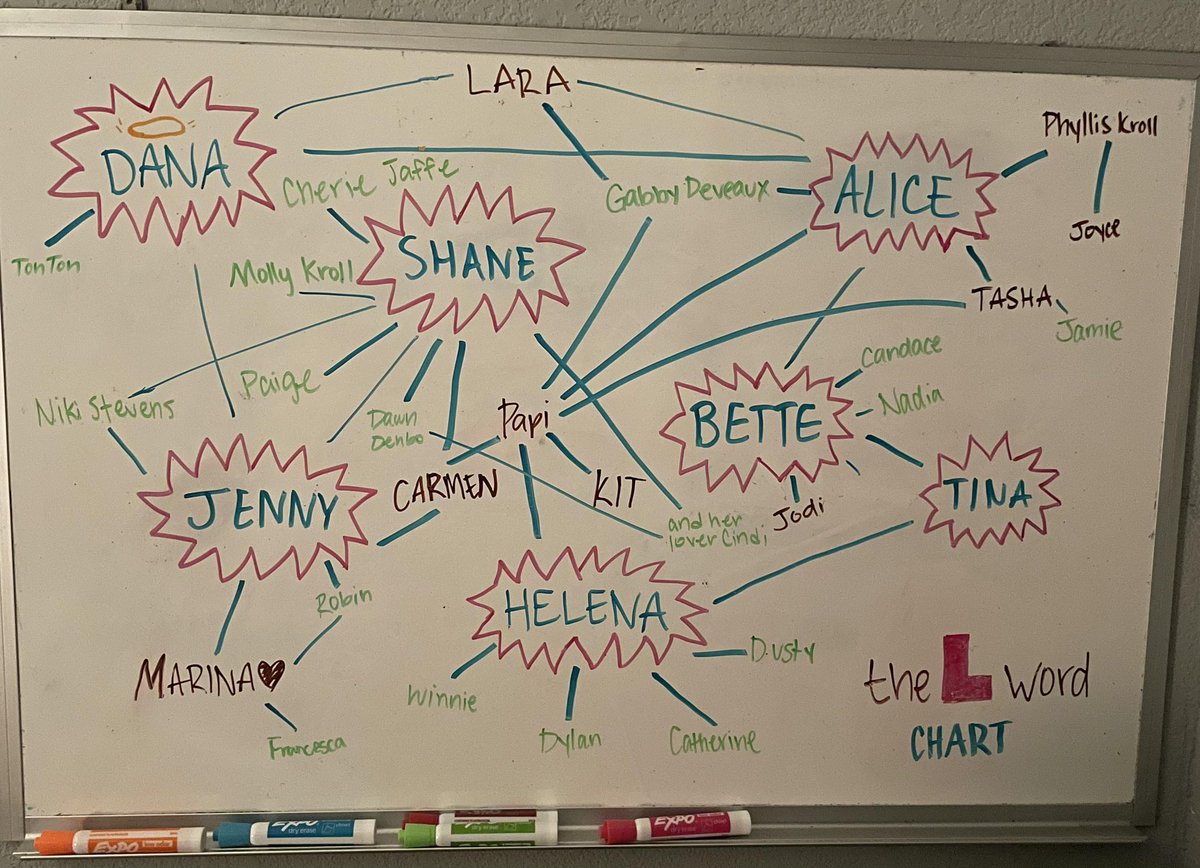 LARA
Phyllis Kroll
DANA
Cherie Jaffe
Gabby Deveaux
ALICE
Joyce
TonTon
Molly Kroll
SHANE
TASHA
Jamie
Paige
Candace
Nadia
Niki Stevens
Dawn
Denbo
Papi
BETTE
JENNY
CARMEN
KIT
Jodi
TINA
and her
lover Cindi
Robin
HELENA
MARINA
Dusty
Winnie
the L word
CHART
Francesca
Dylan
Catherine
EXPO
EXPO
dry erase
EXPO
dry erase
EXPO
dry erase